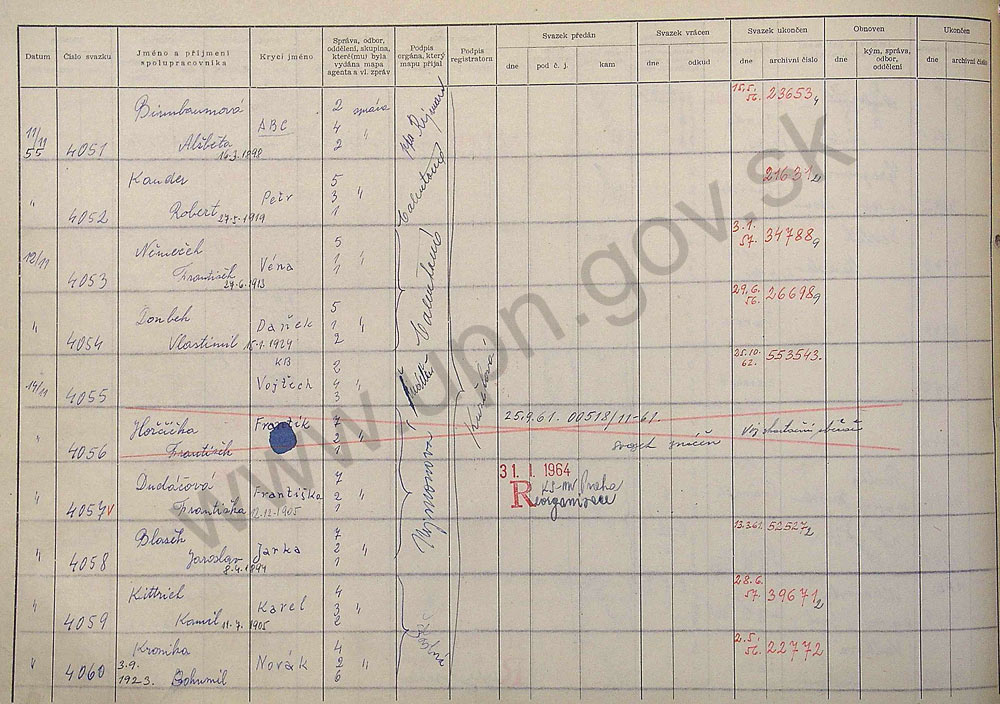 Datum
Číslo svazku
Jméno a příjmení spolupracovníka
Krycí jméno
Správa, odbor, oddělení, skupina, které(mu) byla vydána mapa agenta a vl. zpráv
Podpis orgána, který mapu přijal
Podpis registratora
Svazek předán
dne
pod č. j.
kam
Svazek vrácen
dne
odkud
Svazek ukončen
dne
archivní číslo
Obnoven
dne
kým, správa, odbor, oddělení
Ukončen
dne
archivní číslo
11/11 55
4051
Birnbaumová
Alžběta
16.3.1898
ABC
2 správa
4 "
2
15.5. 56.
23653 4
"
4052
Kander
Robert 27.5.1919
Petr
5
3 "
1
21631 2
12/11
4053
Němeček
František
29.6.1913
Véna
5
1 "
1
3.1. 57.
34788 9
"
4054
Doubek
Vlastimil 15.1.1924
Daněk
5
1 "
2
29.6. 56.
26698 9
14/11
4055
KB
Vojtěch
2
4 "
3
25.10. 62.
553543.
"
4056
Horčička
František
Frantík
7
2 "
1
25.9.61. 00518/11-61.
svazek zničen
"
4057 V
Dudáčová
Františka 12.12.1905
Františka
7
2 "
1
31. I. 1964
KS-MV Praha
Reorganizace
"
4058
Blasík
Jaroslav
8.4.1894
Jarka
7
2 "
1
13.3.61.
52527 2
"
4059
Kittrich
Kamil 11.7.1905
Karel
4
3 "
2
28.6. 57.
39671 2
"
4060
Kronika
3.9. 1923. Bohumil
Novák
4
2 "
6
2.5. 56.
22772
www.upn.gov.sk